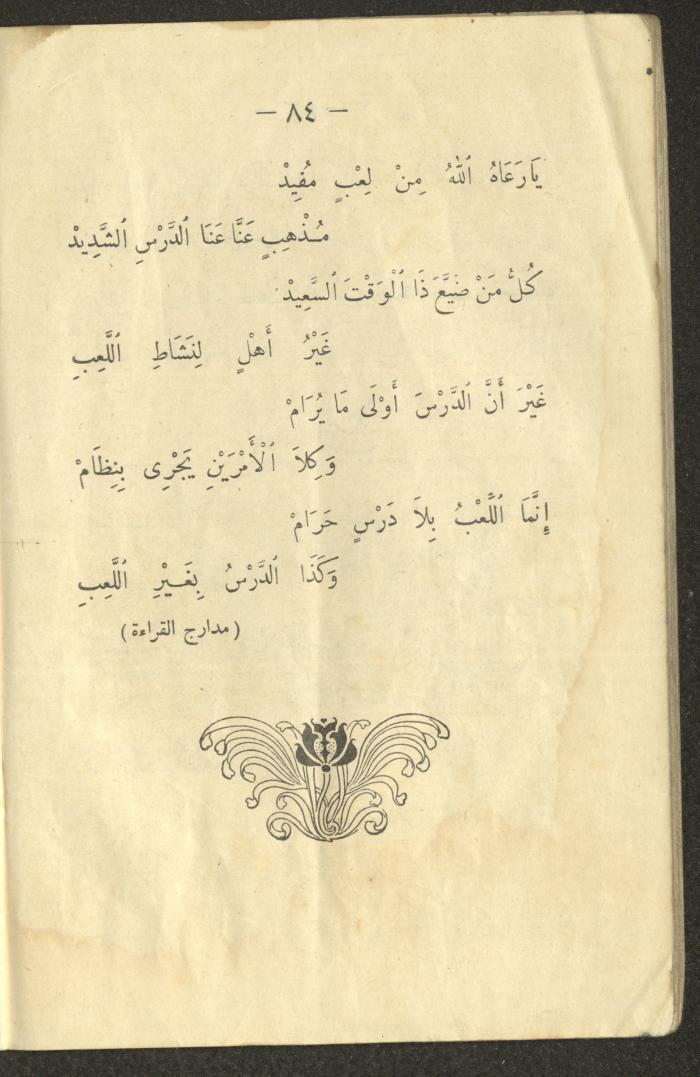 — ٨٤ —
يَارَعَاهُ ٱللهُ مِنْ لِعْبٍ مُفِيدْ
مُذْهِبٍ عَنَّا عَنَا ٱلدَّرْسِ ٱلشَّدِيدْ
كُلُّ مَنْ ضَيَّعَ ذَا ٱلْوَقْتَ ٱلسَّعِيدْ
غَيْرُ أَهْلٍ لِنَشَاطِ ٱللَّعِبِ
غَيْرَ أَنَّ ٱلدَّرْسَ أَوْلَى مَا يُرَامْ
وَكِلاَ ٱلْأَمْرَيْنِ يَجْرِى بِنِظَامْ
إِنَّمَا ٱللَّعْبُ بِلاَ دَرْسٍ حَرَامْ
وَكَذَا ٱلدَّرْسُ بِغَيْرِ ٱللَّعِبِ
(مدارج القراءة)